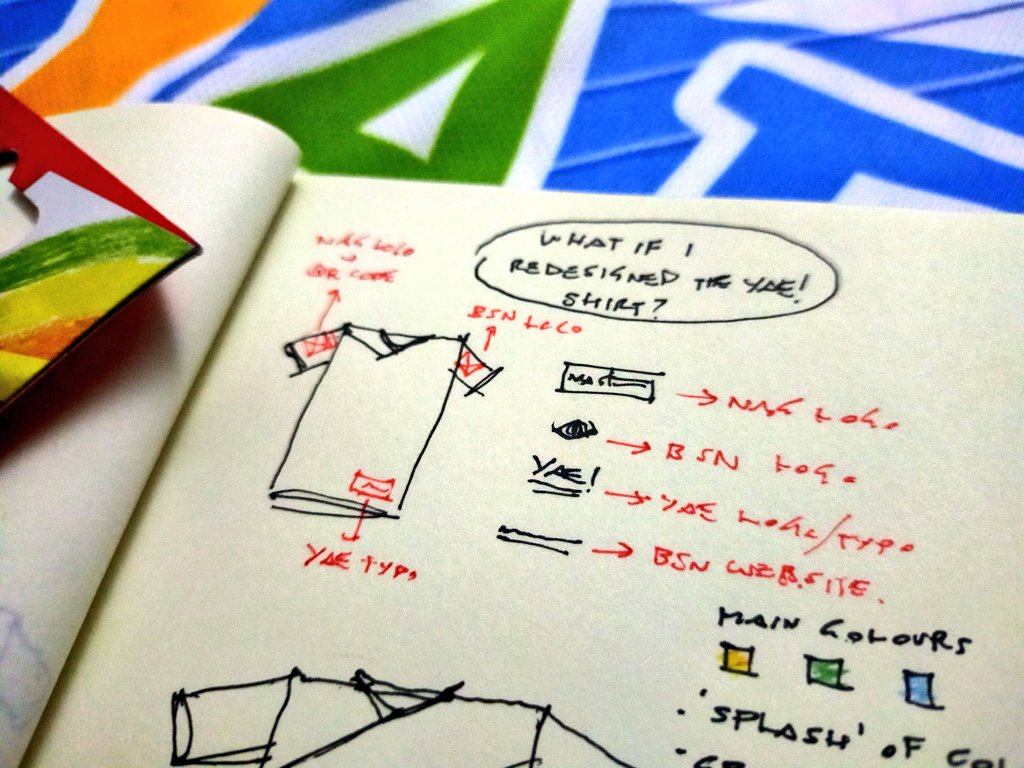 WHAT IF I
REDESIGNED THE YAE!
SHIRT?
NAG LOGO
QR CODE
BSN LOGO
YAE TYPO.
NAG
→ NAG LOGO
→ BSN LOGO
YAE!
→ YAE LOGO/TYPO
→ BSN WEBSITE.
MAIN COLOURS
· 'SPLASH' OF COL
·